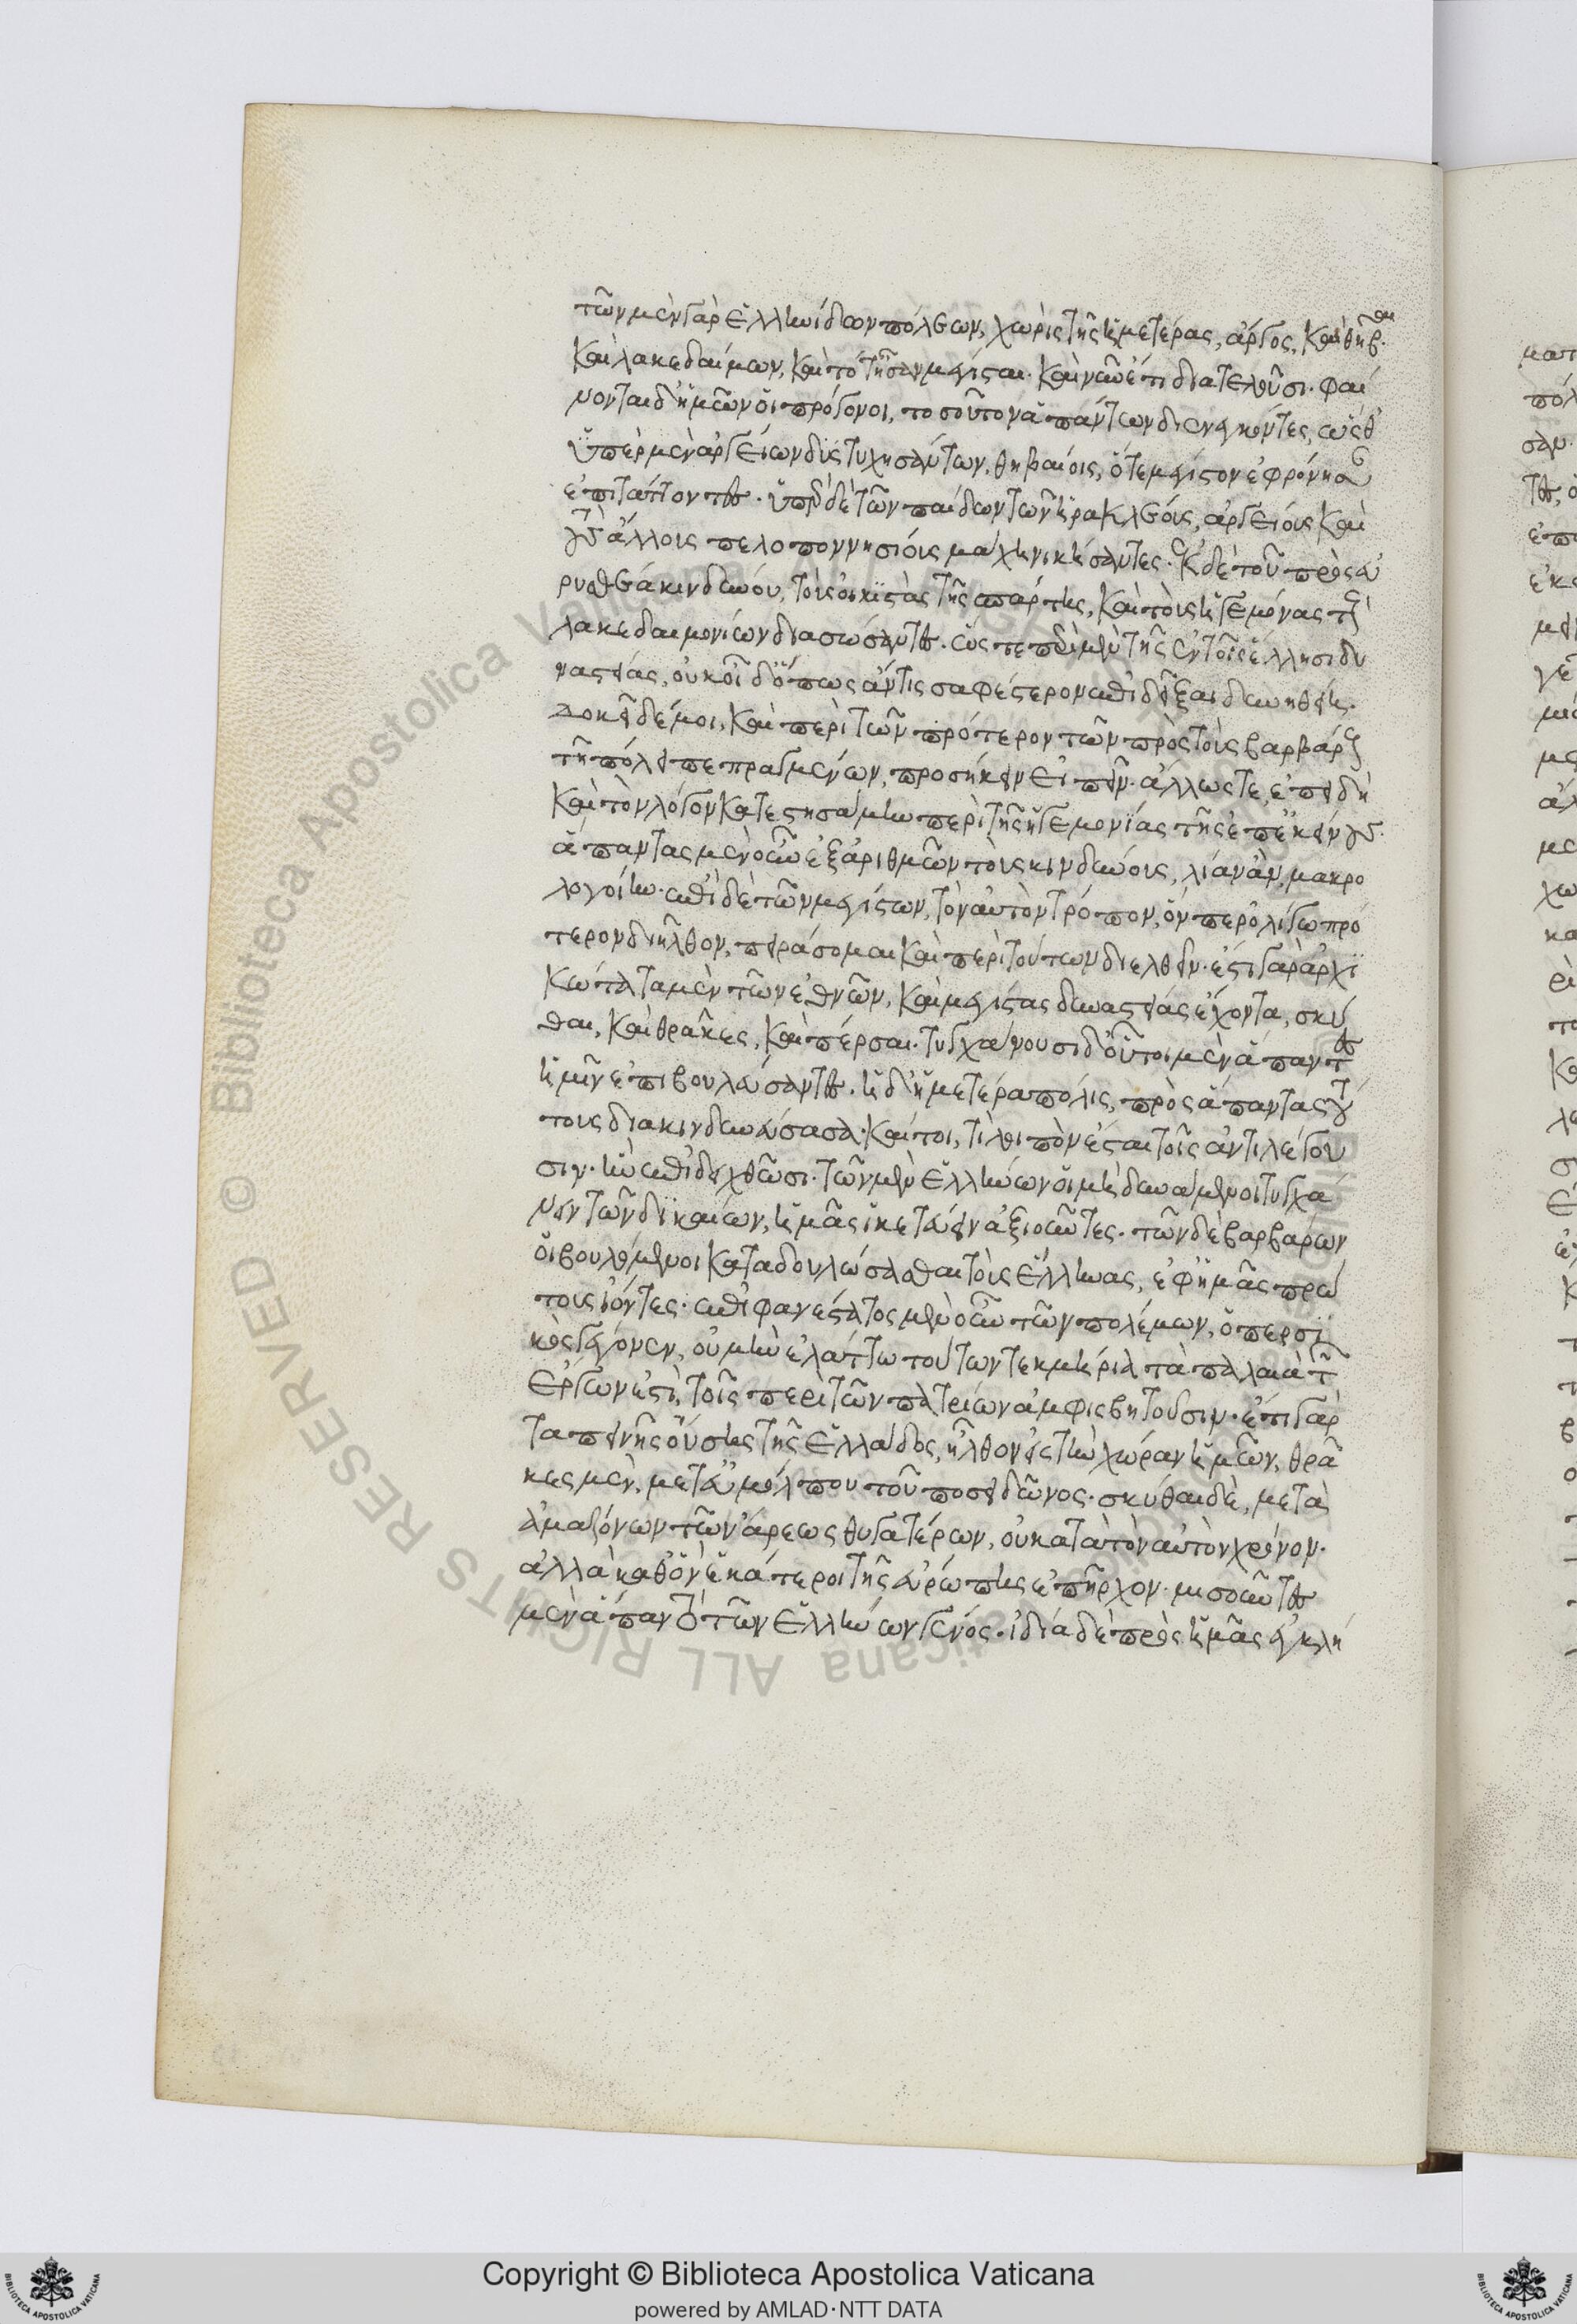 τῶν μὲν γὰρ ἑλληνίδων πόλεων, χωρὶς τῆς ἡμετέρας, ἄργος, καὶ θῆβαι
καὶ λακεδαίμων, καὶ τότ' ἦσαν μέγισται. καὶ νῦν ἔτι διατελοῦσι. φαί
νονται δ' ἡμῶν οἱ πρόγονοι, τοσοῦτον ἁπάντων διενεγκόντες, ὥσθ'
ὑπὲρ μὲν ἀργείων δυστυχησάντων, θηβαίοις, ὅτε μέγιστον ἐφρόνησαν
ἐπιτάττοντες. ὑπὲρ δὲ τῶν παίδων τῶν ἡρακλέους, ἀργείους καὶ
τοὺς ἄλλους πελοποννησίους μάχῃ νικήσαντες. ἐκ δὲ τοῦ πρὸς εὐ
ρυσθέα κινδύνου, τοὺς οἰκιστὰς τῆς σπάρτης, καὶ τοὺς ἡγεμόνας τοὺς
λακεδαιμονίων διασώσαντες. ὥστε περὶ μὲν τῆς ἐν τοῖς ἕλλησι δυ
ναστείας, οὐκ οἶδ' ὅπως ἄν τις σαφέστερον ἐπιδεῖξαι δυνηθείη.
δοκεῖ δέ μοι, καὶ περὶ τῶν πρότερον τῶν πρὸς τοὺς βαρβάρους
τῇ πόλει πεπραγμένων, προσήκειν εἰπεῖν. ἄλλως τε, ἐπειδὴ
καὶ τὸν λόγον κατεστησάμην περὶ τῆς ἡγεμονίας τῆς ἐπ' ἐκείνους.
ἅπαντας μὲν οὖν ἐξαριθμῶν τοὺς κινδύνους, λίαν ἂν, μακρο
λογοίην. ἐπὶ δὲ τῶν μεγίστων, τὸν αὐτὸν τρόπον, ὅνπερ ὀλίγω πρό
τερον διῆλθον, πειράσομαι καὶ περὶ τούτων διελθεῖν. ἔστι γὰρ ἀρχι
κώτατα μὲν τῶν ἐθνῶν, καὶ μεγίστας δυναστείας ἔχοντα, σκύ
θαι, καὶ θρᾶκες, καὶ πέρσαι. τυγχάνουσι δ' οὗτοι μὲν ἅπαντες
ἡμῖν ἐπιβουλεύσαντες. ἡ δ' ἡμετέρα πόλις, πρὸς ἅπαντας τού
τους διακινδυνεύσασα. καίτοι, τί λοιπὸν ἔσται τοῖς ἀντιλέγου
σιν. ἢν ἐπιδειχθῶσι. τῶν μὲν ἑλλήνων οἱ μὴ δυνάμενοι τυγχά
νειν τῶν δικαίων, ἡμᾶς ἱκετεύειν ἀξιοῦντες. τῶν δὲ βαρβάρων
οἱ βουλόμενοι καταδουλώσασθαι τοὺς ἕλληνας, ἐφ' ἡμᾶς πρώ
τους ἰόντες. ἐπιφανέστατος μὲν οὖν τῶν πολέμων, ὁ περσι
κὸς γέγονεν, οὐ μὴν ἐλάττω τούτων τεκμήρια τὰ παλαιὰ τῶν
ἔργων ἐστὶ, τοῖς περὶ τῶν πατρίων ἀμφισβητοῦσιν. ἔτι γὰρ
ταπεινῆς οὔσης τῆς ἑλλάδος, ἦλθον εἰς τὴν χώραν ἡμῶν, θρᾷ
κες μὲν, μετ' εὐμόλπου τοῦ ποσειδῶνος. σκύθαι δὲ, μετὰ
ἀμαζόνων τῶν ἄρεως θυγατέρων, οὐ κατὰ τὸν αὐτὸν χρόνον.
ἀλλὰ καθ' ὃν ἑκάτεροι τῆς εὐρώπης ἐπῆρχον. μισοῦντες
μὲν ἅπαν τὸ τῶν ἑλλήνων γένος. ἰδία δὲ πρὸς ἡμᾶς ἐγκλή
© Biblioteca Apostolica Vaticana ALL RIGHTS RESERVED
Copyright © Biblioteca Apostolica Vaticana
powered by AMLAD·NTT DATA